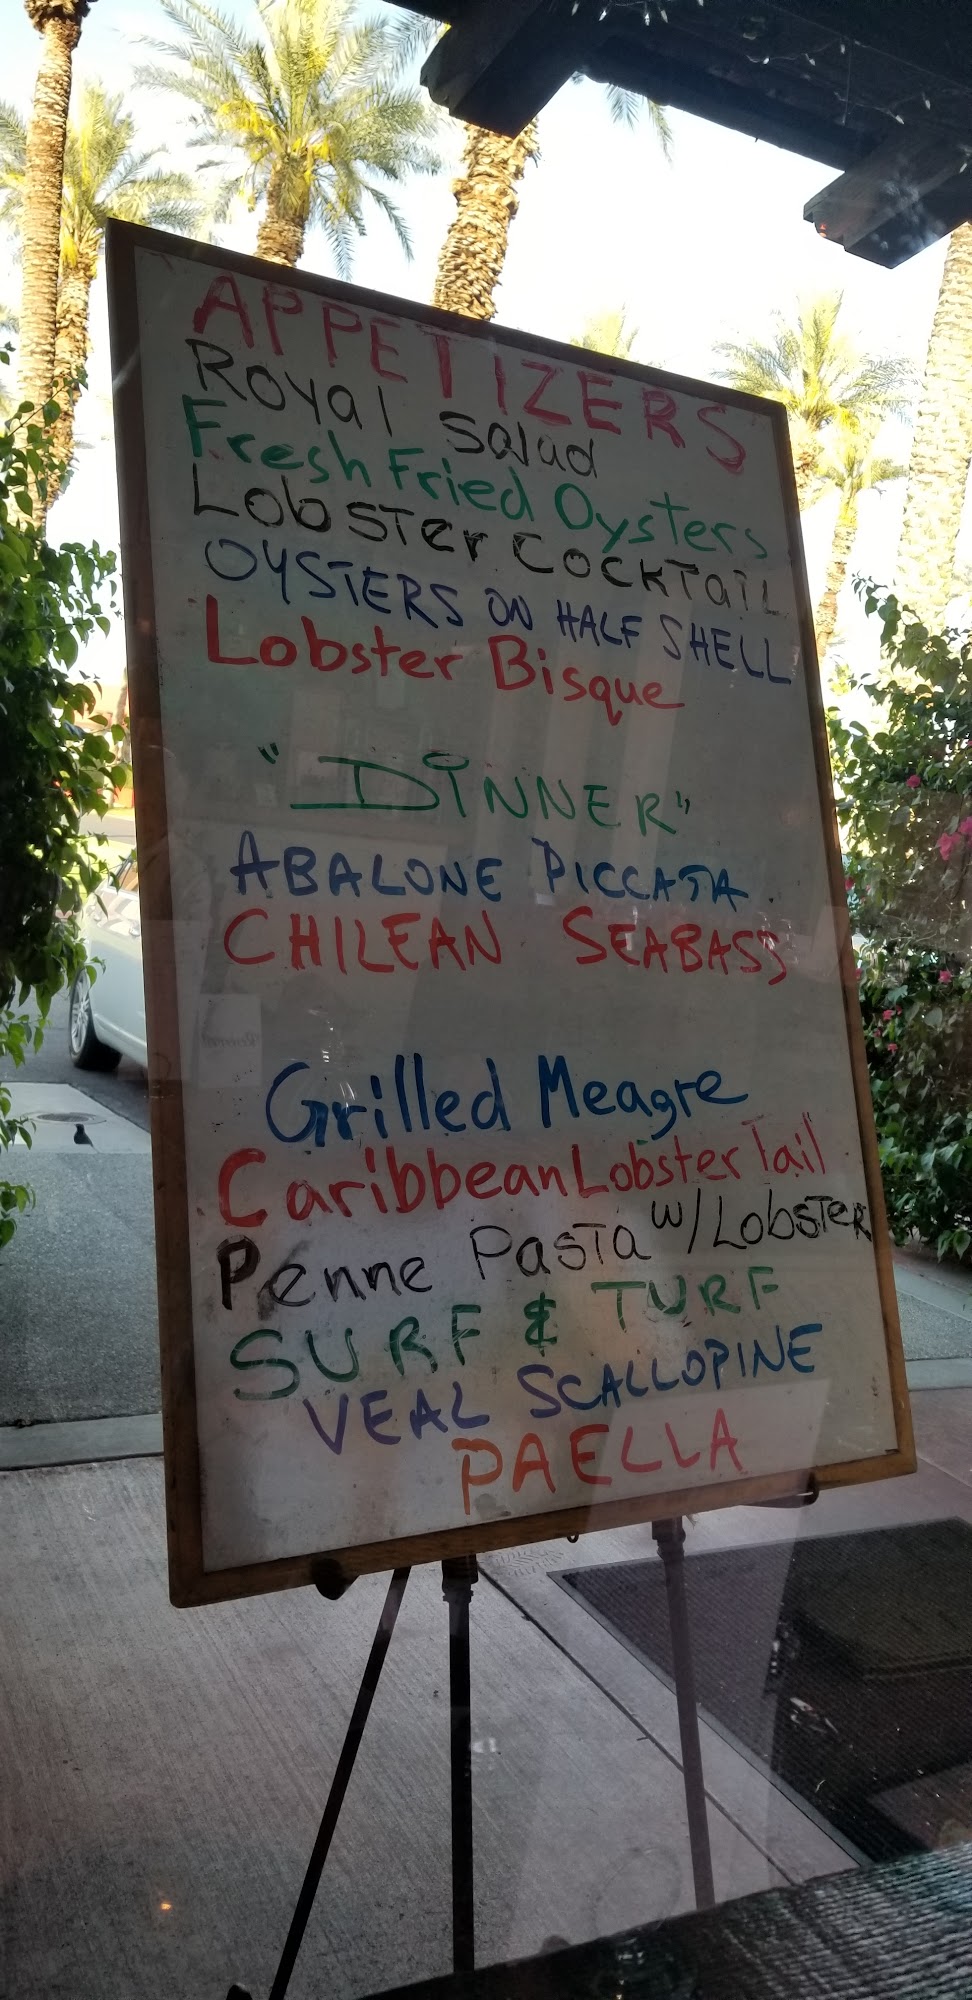 APPETIZERS
ROYal Salad
Fresh Fried Oysters
LOBSTer COCKTaIL
OYSTERS ON HALF SHELL
Lobster Bisque
"DINNER"
ABALONE PICCATA
CHILEAN SEABASS
Grilled Meagre
Caribbean Lobster Tail
Penne PaSTa w/LOBSTER
SURF & TURF
VEAL SCALLOPINE
PAELLA